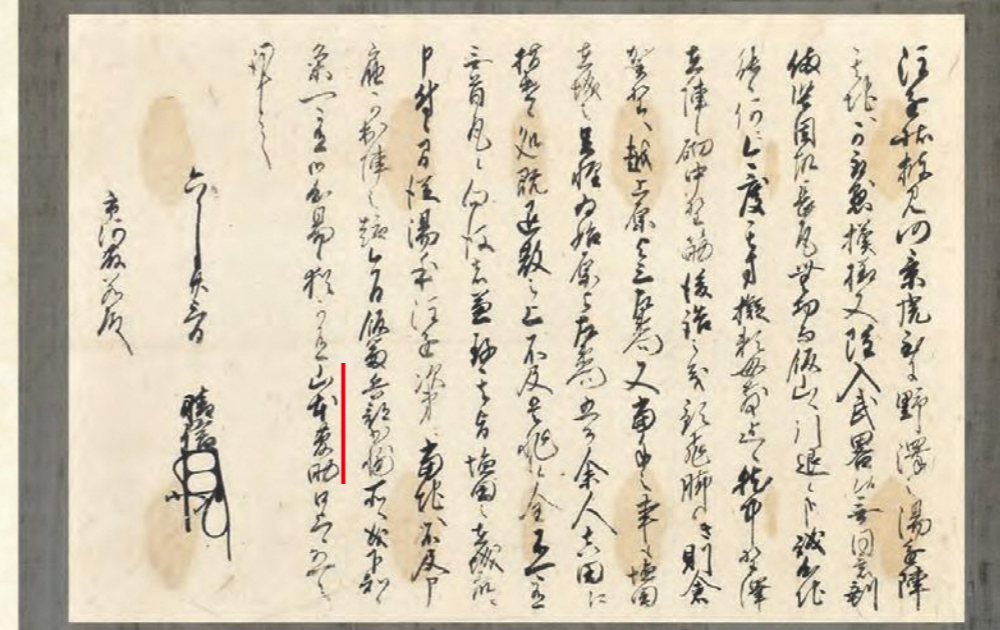 注進状披見仍景虎至于野澤之湯進陣
其地へ可取懸模様又雖入武略候無同意剰
備堅固故長尾無功而飯山へ引退候哉誠心地
能候何今度其方擬頼母敷迄候就中野澤
在陣之砌中野筋後詰之義預飛脚候き則倉
賀野へ越上原与三左衛門尉又当手之事も塩田
在城之足軽為始原与左衛門尉五百余人真田江
指遣候処既退散之上不及是非候全不可有
無首尾候向後者兼存其旨塩田之在城衆へ
申付候間従湯本注進次第当地へ不及申
届可出陣之趣今日飯富兵部少輔所へ成下知候
条可有御心易候猶可有山本菅助口上候恐々
謹言
六月廿三日 晴信
市河藤若殿